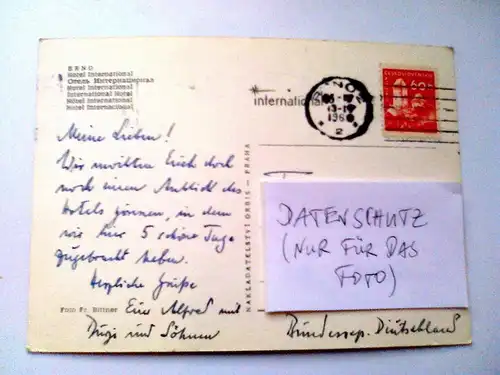 BRNO
Hotel International
Отель Интернационал
Hotel International
International Hotel
Hôtel International
Hotel International
international
BRNO
196
2
ČESKOSLOVENSKO
60
Meine Lieben!
Wir wollten Euch doch
noch einen Anblick des
Hotels gönnen, in dem
wir hier 5 schöne Tage
zugebracht haben.
Herzliche Grüße
Eure Alfred mit
und Söhnen
Foto Fr. Bittner
NAKLADATELSTVÍ ORBIS — PRAHA
DATENSCHUTZ
(NUR FÜR DAS
FOTO)
Bundesrep. Deutschland